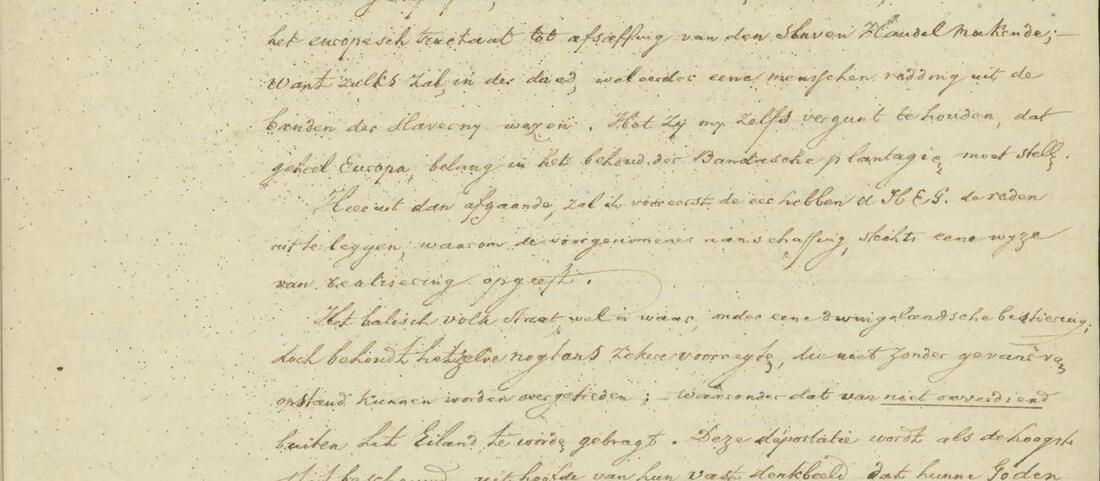 het europesch tractaat tot afschaffing van den Slaven Handel makende; —
want zulks zal, in der daad, wel eerder eene menschen redding uit de
banden der Slaverny wezen. Het zij my zelfs vergunt te houden, dat
geheel Europa, belang in het behoud der Bandasche plantagie moet stell.
Hieruit dan afgaande, zal ik vooreerst de eer hebben U H E G. de reden
uit te leggen, waarom de voorgenomene aanschaffing, slechts eene wyze
van realisering opgeeft.
Het balisch volk staat, wel is waar, onder eene dwingelandsche bestiering;
doch behoudt hetzelve nogtans zekere voorregte, die niet zonder gevaar van
opstand kunnen worden overgetreden; — waaronder dat van niet onverdiend
buiten het Eiland te worde gebragt. Deze deportatie wordt als de hoogste
uit hoofde van hun vast denkbeeld dat hunne Goden